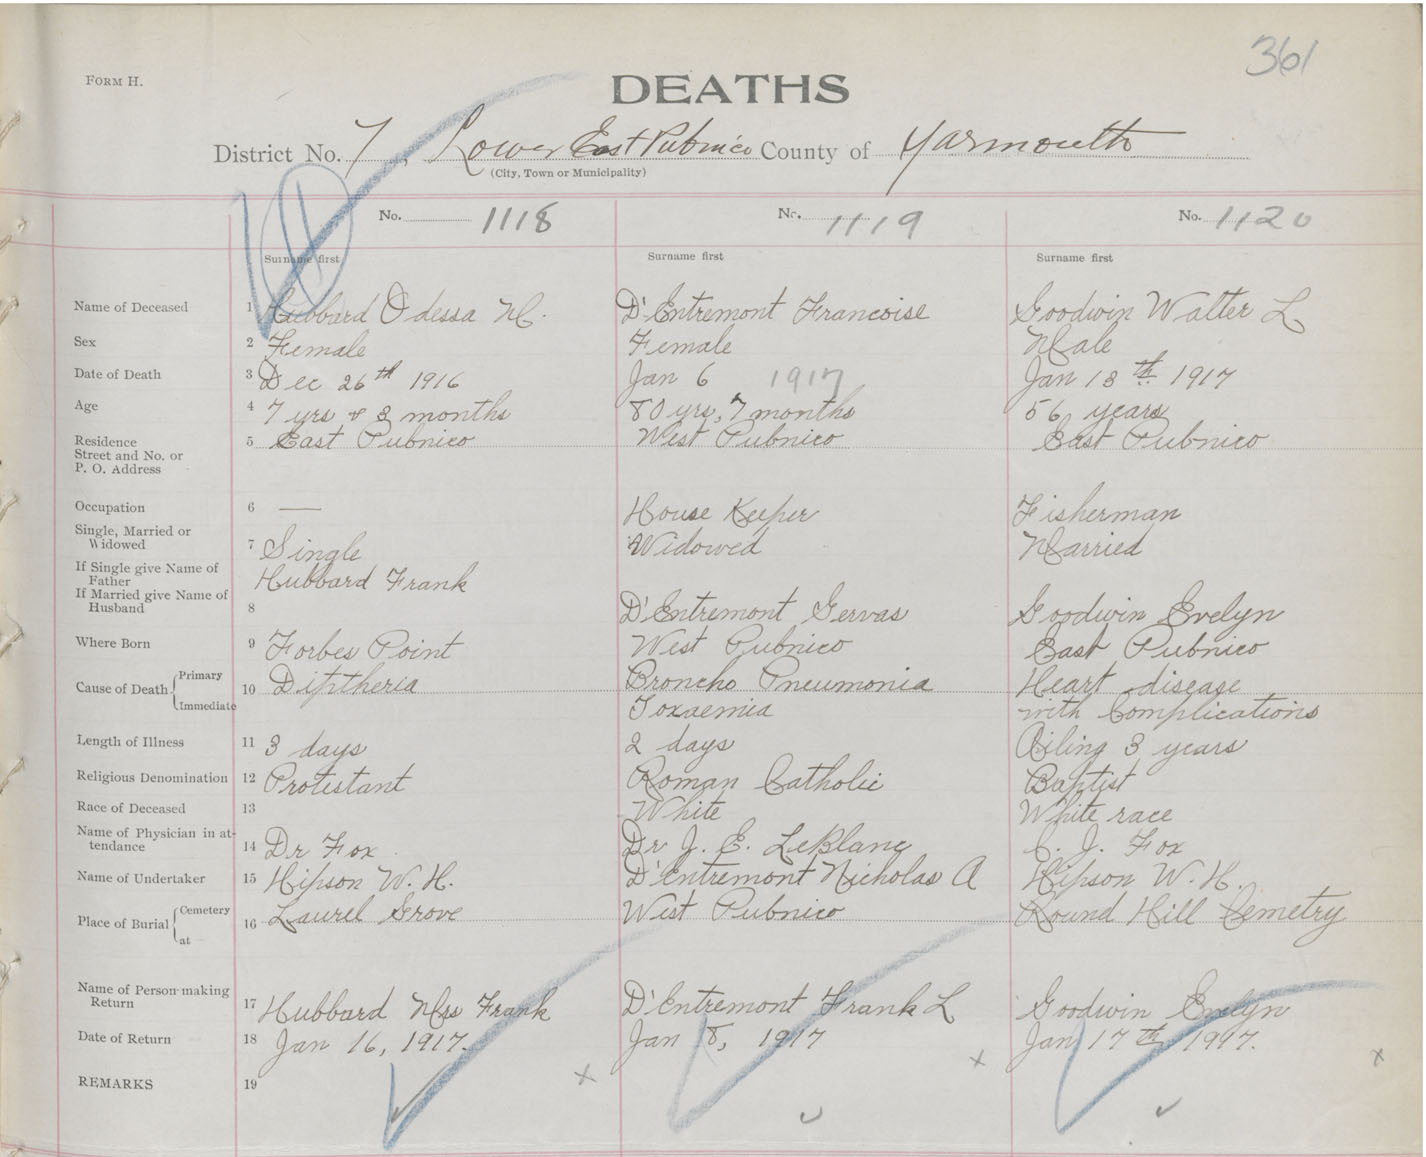 361
FORM H.
DEATHS
District No. 7, Lower East Pubnico County of Yarmouth
(City, Town or Municipality)
No. 1118 No. 1119 No. 1120
Surname first Surname first Surname first
Name of Deceased 1 Hubbard Odessa M. D'Entremont Francoise Goodwin Walter L
Sex 2 Female Female Male
Date of Death 3 Dec 26th 1916 Jan 6 1917 Jan 13th 1917
Age 4 7 yrs & 3 months 80 yrs, 7 months 56 years
Residence 5 East Pubnico West Pubnico East Pubnico
Street and No. or
P. O. Address
Occupation 6 — House Keeper Fisherman
Single, Married or
Widowed 7 Single Widowed Married
If Single give Name of
Father Hubbard Frank
If Married give Name of
Husband 8 D'Entremont Gervas Goodwin Evelyn
Where Born 9 Forbes Point West Pubnico East Pubnico
Cause of Death Primary 10 Diptheria Broncho Pneumonia Heart disease
Immediate Toxaemia with Complications
Length of Illness 11 3 days 2 days Ailing 3 years
Religious Denomination 12 Protistant Roman Catholic Baptist
Race of Deceased 13 White White race
Name of Physician in at-
tendance 14 Dr Fox Dr J. E. LeBlanc C. J. Fox
Name of Undertaker 15 Hipson W. H. D'Entremont Nicholas A Hipson W. H.
Place of Burial Cemetery 16 Laurel Grove West Pubnico Round Hill Cemetry
at
Name of Person making
Return 17 Hubbard Mrs Frank D'Entremont Frank L Goodwin Evelyn
Date of Return 18 Jan 16, 1917. Jan 8, 1917 Jan 17th 1917.
REMARKS 19 x x x